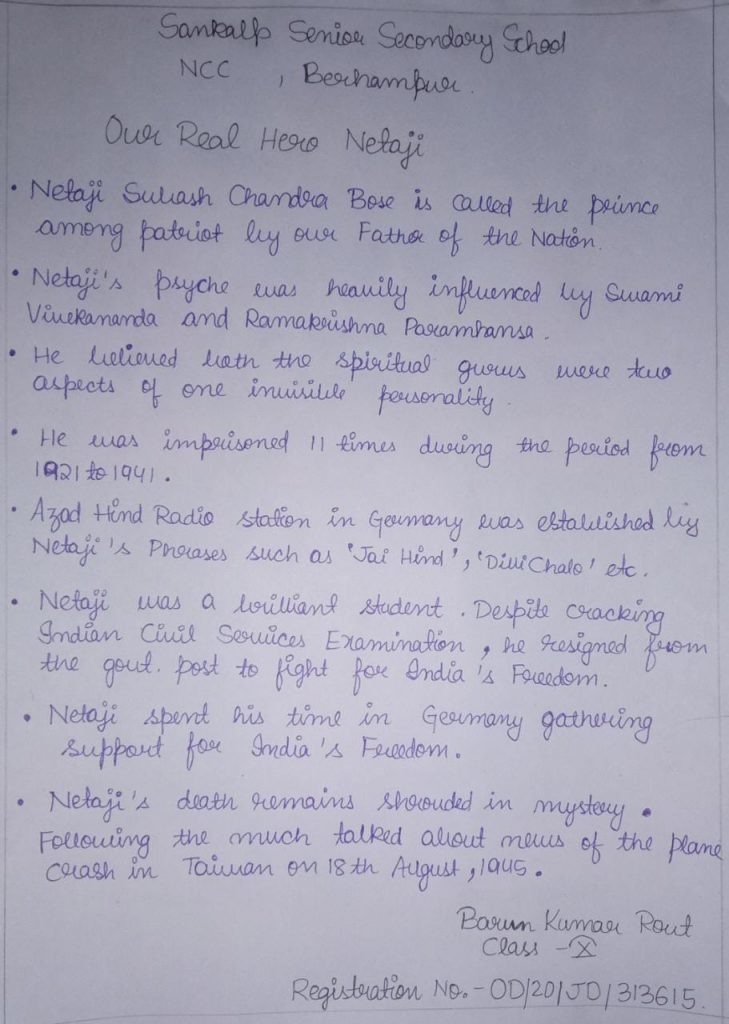 Sankalp Senior Secondary School
NCC , Berhampur.
Our Real Hero Netaji
• Netaji Subash Chandra Bose is called the prince
among patriot by our Father of the Nation.
• Netaji's psyche was heavily influenced by Swami
Vivekananda and Ramakrishna Paramhansa.
• He believed both the spiritual gurus were two
aspects of one invisible personality.
• He was imprisoned 11 times during the period from
1921 to 1941.
• Azad Hind Radio station in Germany was established by
Netaji's Phrases such as 'Jai Hind', 'Dilli Chalo' etc.
• Netaji was a brilliant student. Despite cracking
Indian Civil Services Examination, he resigned from
the govt. post to fight for India's Freedom.
• Netaji spent his time in Germany gathering
support for India's Freedom.
• Netaji's death remains shrouded in mystery.
Following the much talked about news of the plane
crash in Taiwan on 18th August, 1945.
Barun Kumar Rout
Class - X
Registration No. - OD/20/JD/313615.